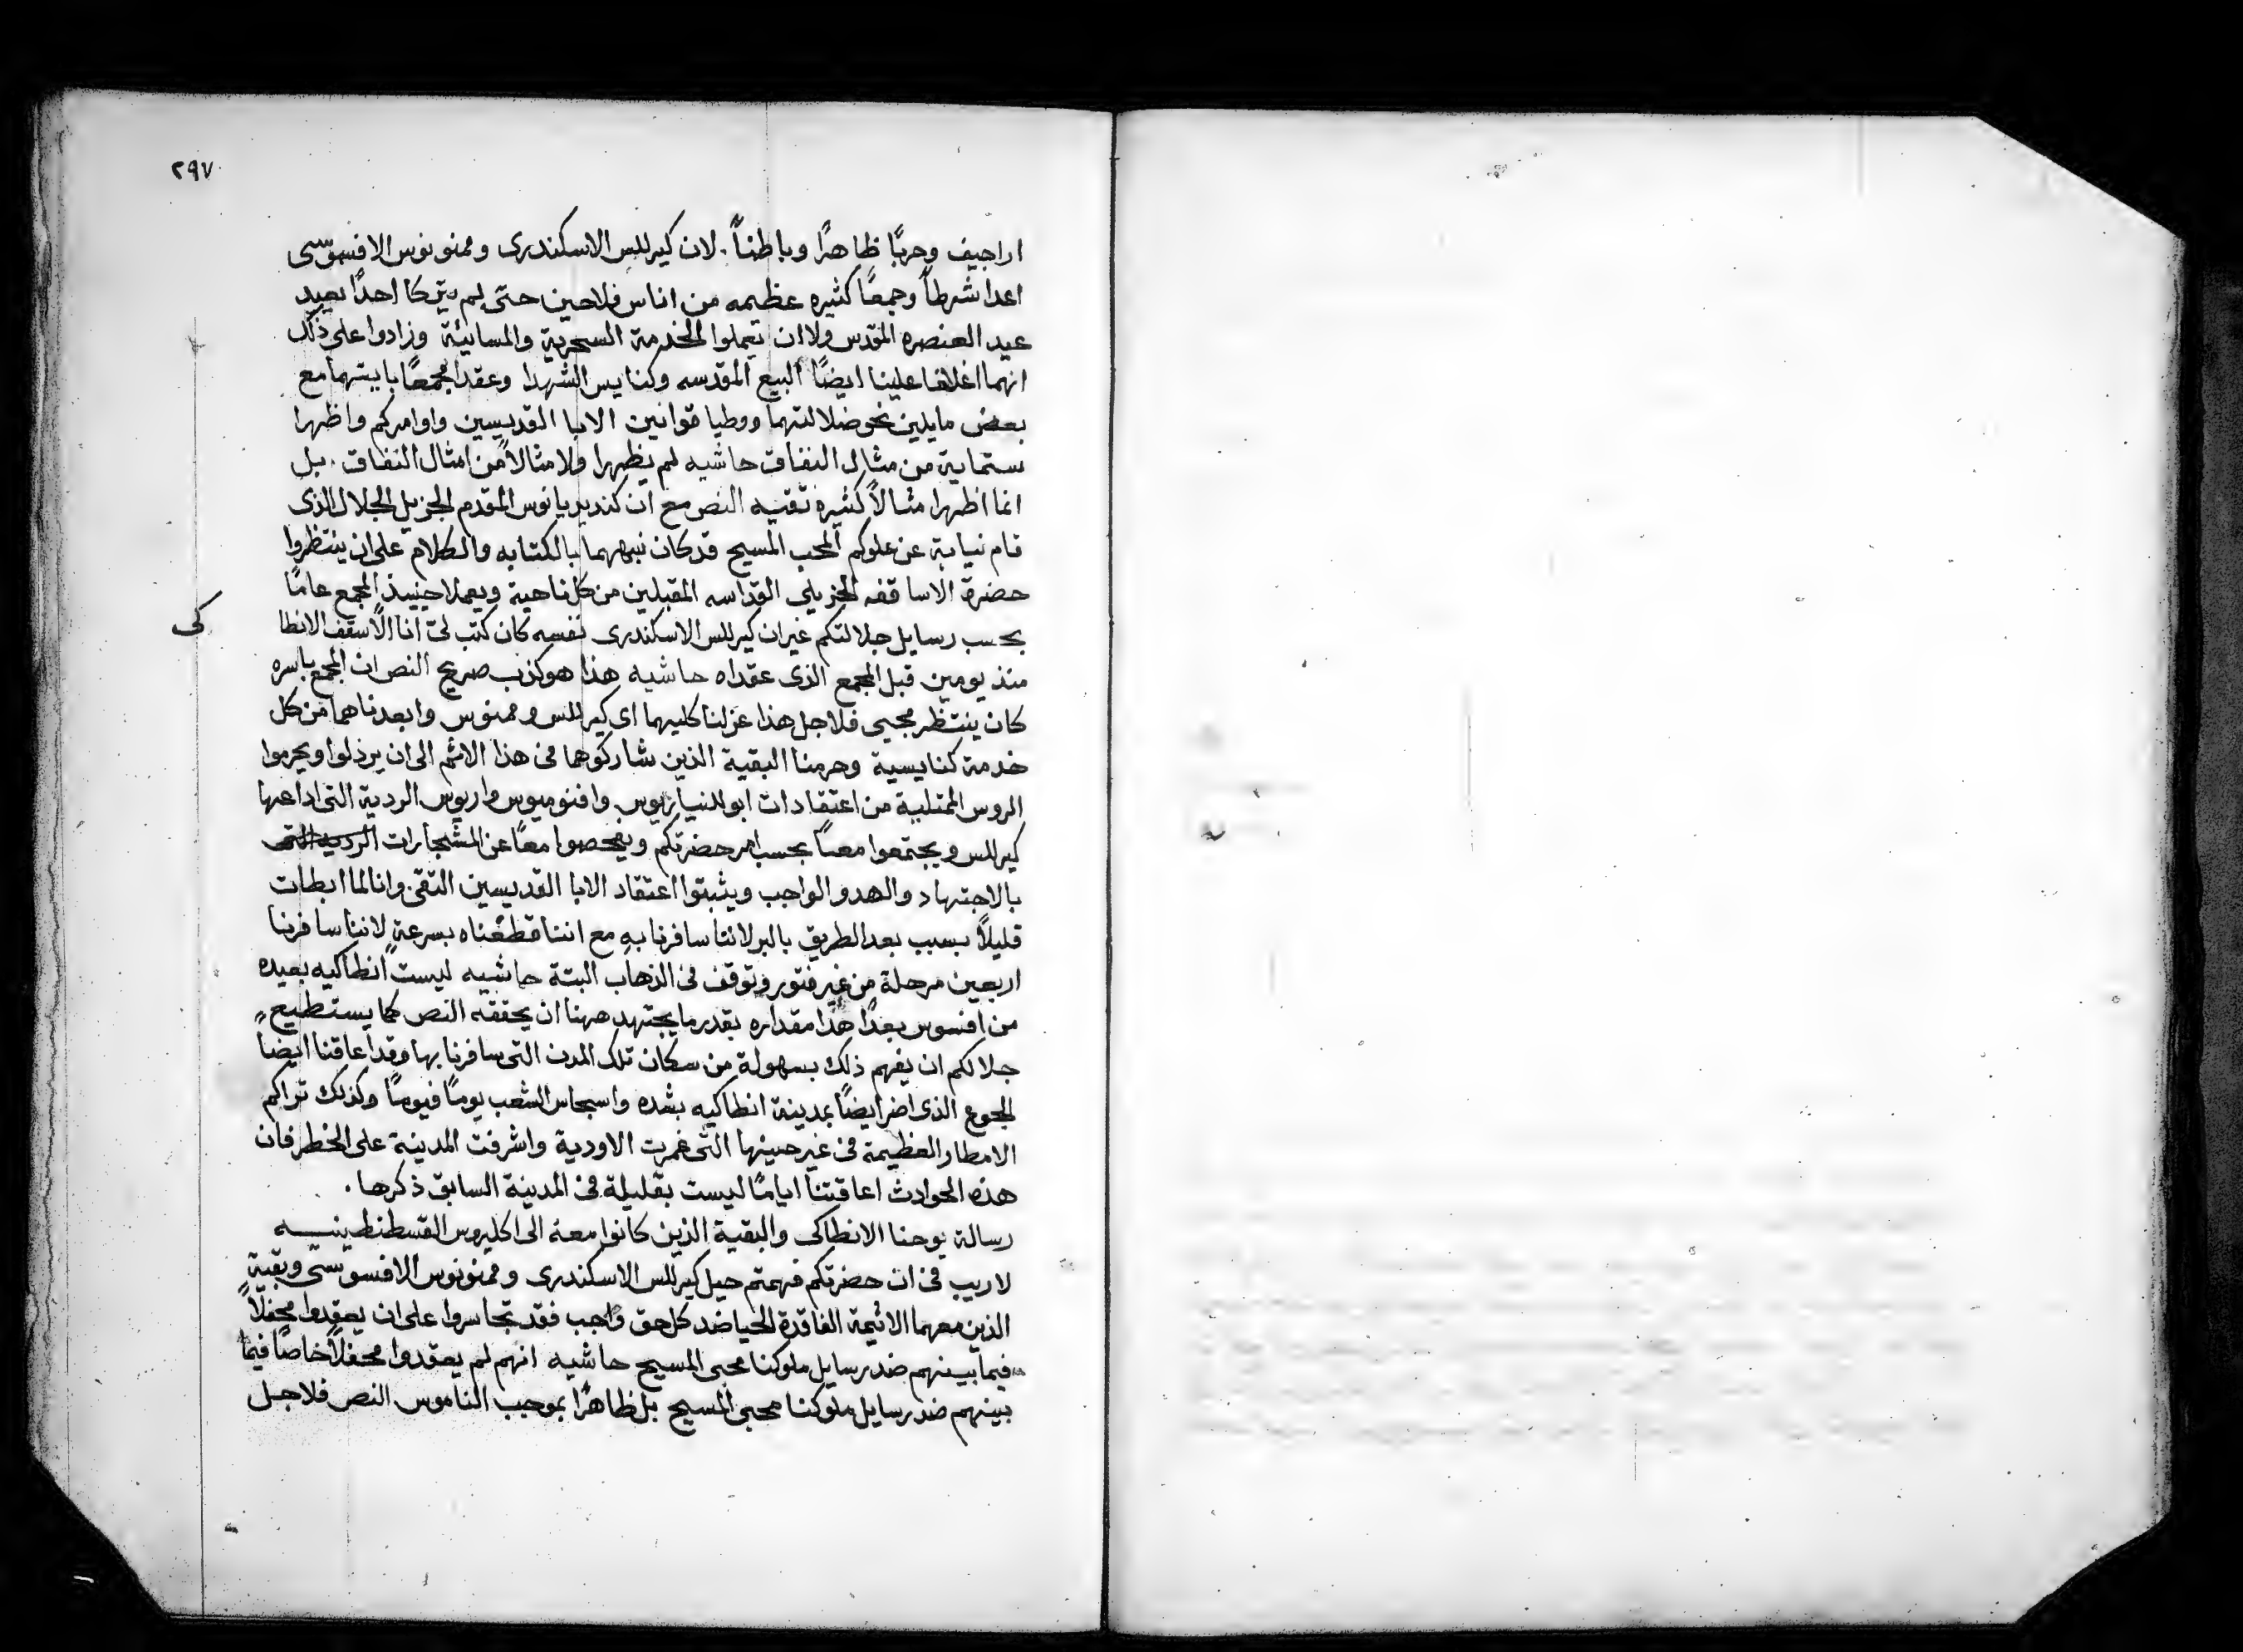 ٢٩٧
اراجيف وحربًا ظاهرًا وباطنًا. لان كيرللس الاسكندرى وممنونوس الافسوسى
اعدا شرطًا وجمعًا كثيره عظيمه من اناس فلاحين حتى لم يتركا احدًا يعيد
عيد العنصره المقدس ولا ان تعملوا الخدمة السحرية والمسائية وزادوا على ذلك
انهما اغلقا علينا ايضًا البيع المقدسه وكنايس الشهدا وعقدا مجمعًا بايبتهما مع
بعض مايلين نحو ضلالتهما ووطيا قوانين الابا القديسين واوامركم واظهرا
ستماية من مثال النفاق حاشيه لم يظهرا ولا مثالاً من امثال النفاق. بل
انما اظهرا مثالاً كثيرة تقتيه النص مع ان كنديديانوس المقدم الجزيل الجلال الذى
قام نيابة عن علوكم المحب المسيح قد كان نبههما بالكتابه والكلام على ان ينتظروا
حضرة الاساقفه الجزيلى القداسه المقبلين من كل ناحية ويعملا حينيذ المجمع عامًا
بحسب رسايل جلالتكم غير ان كيرللس الاسكندرى نفسه كان كتب لىّ انا الاسقف الانطا
كى
منذ يومين قبل المجمع الذى عقداه حاشيه هذا هو كذب صريح النص ان المجمع باسره
كان ينتظر مجيى فلاجل هذا عزلنا كليهما اى كيرللس وممنوس وابعدناهما من كل
خدمة كنايسية وحرمنا البقية الذين شاركوهما فى هذا الاثم الى ان يرذلوا ويحرموا
الروس الممتلية من اعتقادات ابوللنياريوس وافنوميوس واريوس الردية التى اذاعها
كيرللس ويجتمعوا معنا بحسب امر حضرتكم ويفحصوا معًا عن المشجارات الردية التى
بالاجتهاد والهدو الواجب ويثبتوا اعتقاد الابا القديسين التقى. وانا لما ابطات
قليلاً بسبب بعد الطريق بالبر لاننا سافرنا به مع اننا قطعناه بسرعة لاننا سافرنا
اربعين مرحلة من غير فتور وتوقف فى الذهاب البتة حاشيه ليست انطاكيه بعيده
من افسوس بعدًا هذا مقداره بقدر ما يجتهد ههنا ان يحققه النص كما يستطيع
جلالكم ان يفهم ذلك بسهولة من سكان تلك المدن التى سافرنا بها وقد اعاقنا ايضًا
الجوع الذى اضر ايضًا بمدينة انطاكيه بشده واسبجاس الشعب يومًا فيومًا وكذلك تراكم
الامطار العظيمة فى غير حينها التى غمرت الاودية واشرفت المدينة على الخطر فان
هذه الحوادث اعاقتنا ايامًا ليست بقليلة فى المدينة السابق ذكرها.
رسالة يوحنا الانطاكى والبقية الذين كانوا معه الى اكليروس القسطنطينيه
لا ريب فى ان حضرتكم فهمتم حيل كيرللس الاسكندرى وممنونوس الافسوسى وبقية
الذين معهما الاثيمة الفاقدة الحيا ضد كل حق واجب فقد تجاسروا على ان يعقدوا محفلاً
فيما بينهم ضد رسايل ملوكنا محبى المسيح حاشيه انهم لم يعقدوا محفلاً خاصًا فيما
بينهم ضد رسايل ملوكنا محبى المسيح بل ظاهرًا بموجب الناموس النص فلاجل